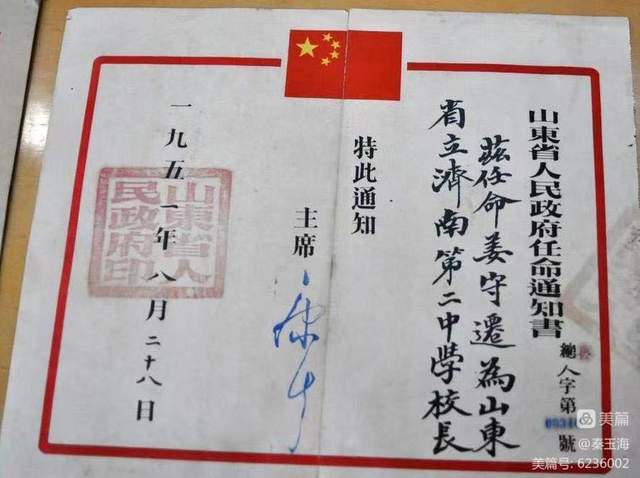 山東省人民政府任命通知書
總人字第 號
茲任命姜守遷為山東
省立濟南第二中學校長
特此通知
主席
一九五一年八月二十八日
山東省人
民政府印
美篇
@秦玉海
美篇号: 6236002